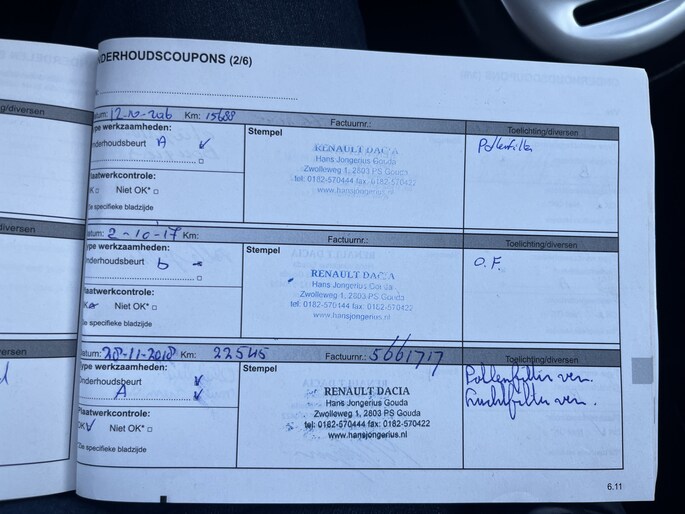 NDERHOUDSCOUPONS (2/6)
g/diversen
atum: 12-10-2016 Km: 15688 Factuurnr.: Toelichting/diversen
ype werkzaamheden: Stempel
nderhoudsbeurt A Pollenfilter
RENAULT DACIA
Hans Jongerius Gouda
Zwolleweg 1, 2803 PS Gouda
tel: 0182-570444 fax: 0182-570422
www.hansjongerius.nl
laatwerkcontrole:
K Niet OK*
Zie specifieke bladzijde
diversen
atum: 2-10-17 Km: Factuurnr.: Toelichting/diversen
ype werkzaamheden: Stempel
nderhoudsbeurt b O.F.
RENAULT DACIA
Hans Jongerius Gouda
Zwolleweg 1, 2803 PS Gouda
tel: 0182-570444 fax: 0182-570422
www.hansjongerius.nl
laatwerkcontrole:
K Niet OK*
Zie specifieke bladzijde
ersen
atum: 28-11-2018 Km: 22545 Factuurnr.: 5661717 Toelichting/diversen
ype werkzaamheden: Stempel
Onderhoudsbeurt
A
Pollenfilter ver.
Luchtfilter ver.
RENAULT DACIA
Hans Jongerius Gouda
Zwolleweg 1, 2803 PS Gouda
tel: 0182-570444 fax: 0182-570422
www.hansjongerius.nl
Plaatwerkcontrole:
OK Niet OK*
Zie specifieke bladzijde
6.11